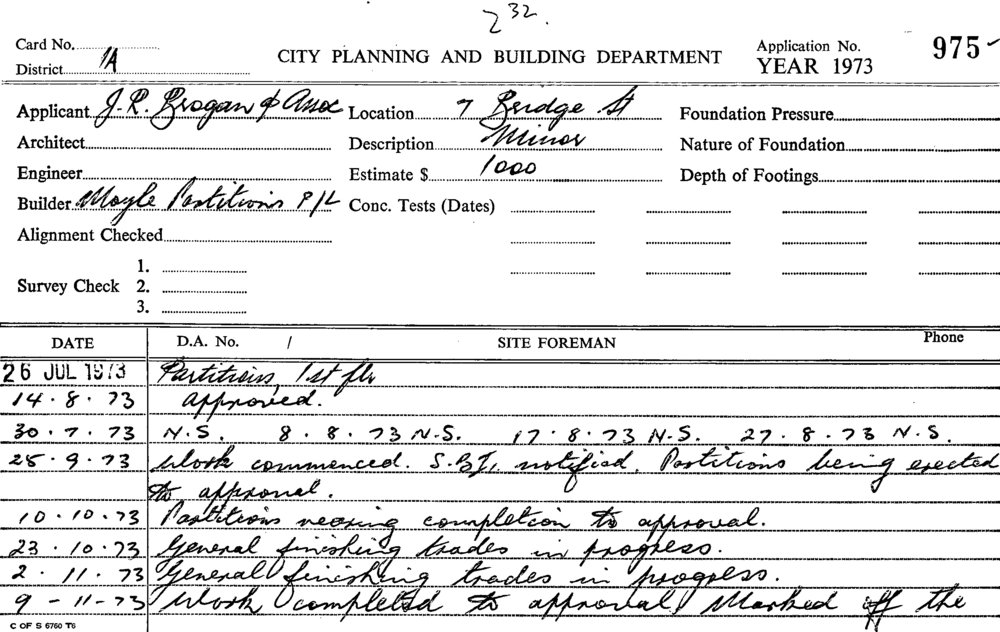 232.
Card No.
District 1A
CITY PLANNING AND BUILDING DEPARTMENT
Application No. 975
YEAR 1973
Applicant J. R. Brogan & Assoc Location 7 Bridge St Foundation Pressure
Architect Description Minor Nature of Foundation
Engineer Estimate $ 1000 Depth of Footings
Builder Moyle Partitions P/L Conc. Tests (Dates)
Alignment Checked
Survey Check 1.
2.
3.
DATE D.A. No. / SITE FOREMAN Phone
26 JUL 1973 Partitions, 1st flr
14.8.73 approved.
30.7.73 N.S. 8.8.73 N.S. 17.8.73 N.S. 27.8.73 N.S.
25.9.73 Work commenced. S.B.I. notified. Partitions being erected
to approval.
10.10.73 Partitions nearing completion to approval.
23.10.73 General finishing trades in progress.
2.11.73 General finishing trades in progress.
9-11-73 Work completed to approval Marked off the
C OF S 6760 T6